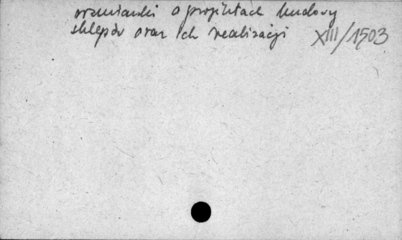 wzmianki o projektach budowy
sklepów oraz ich realizacji XIII/1503